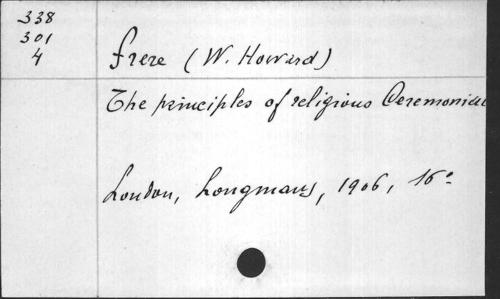 338
301
4
Frere (W. Howard)
The principles of religious Ceremonial
London, Longmans, 1906, 16º